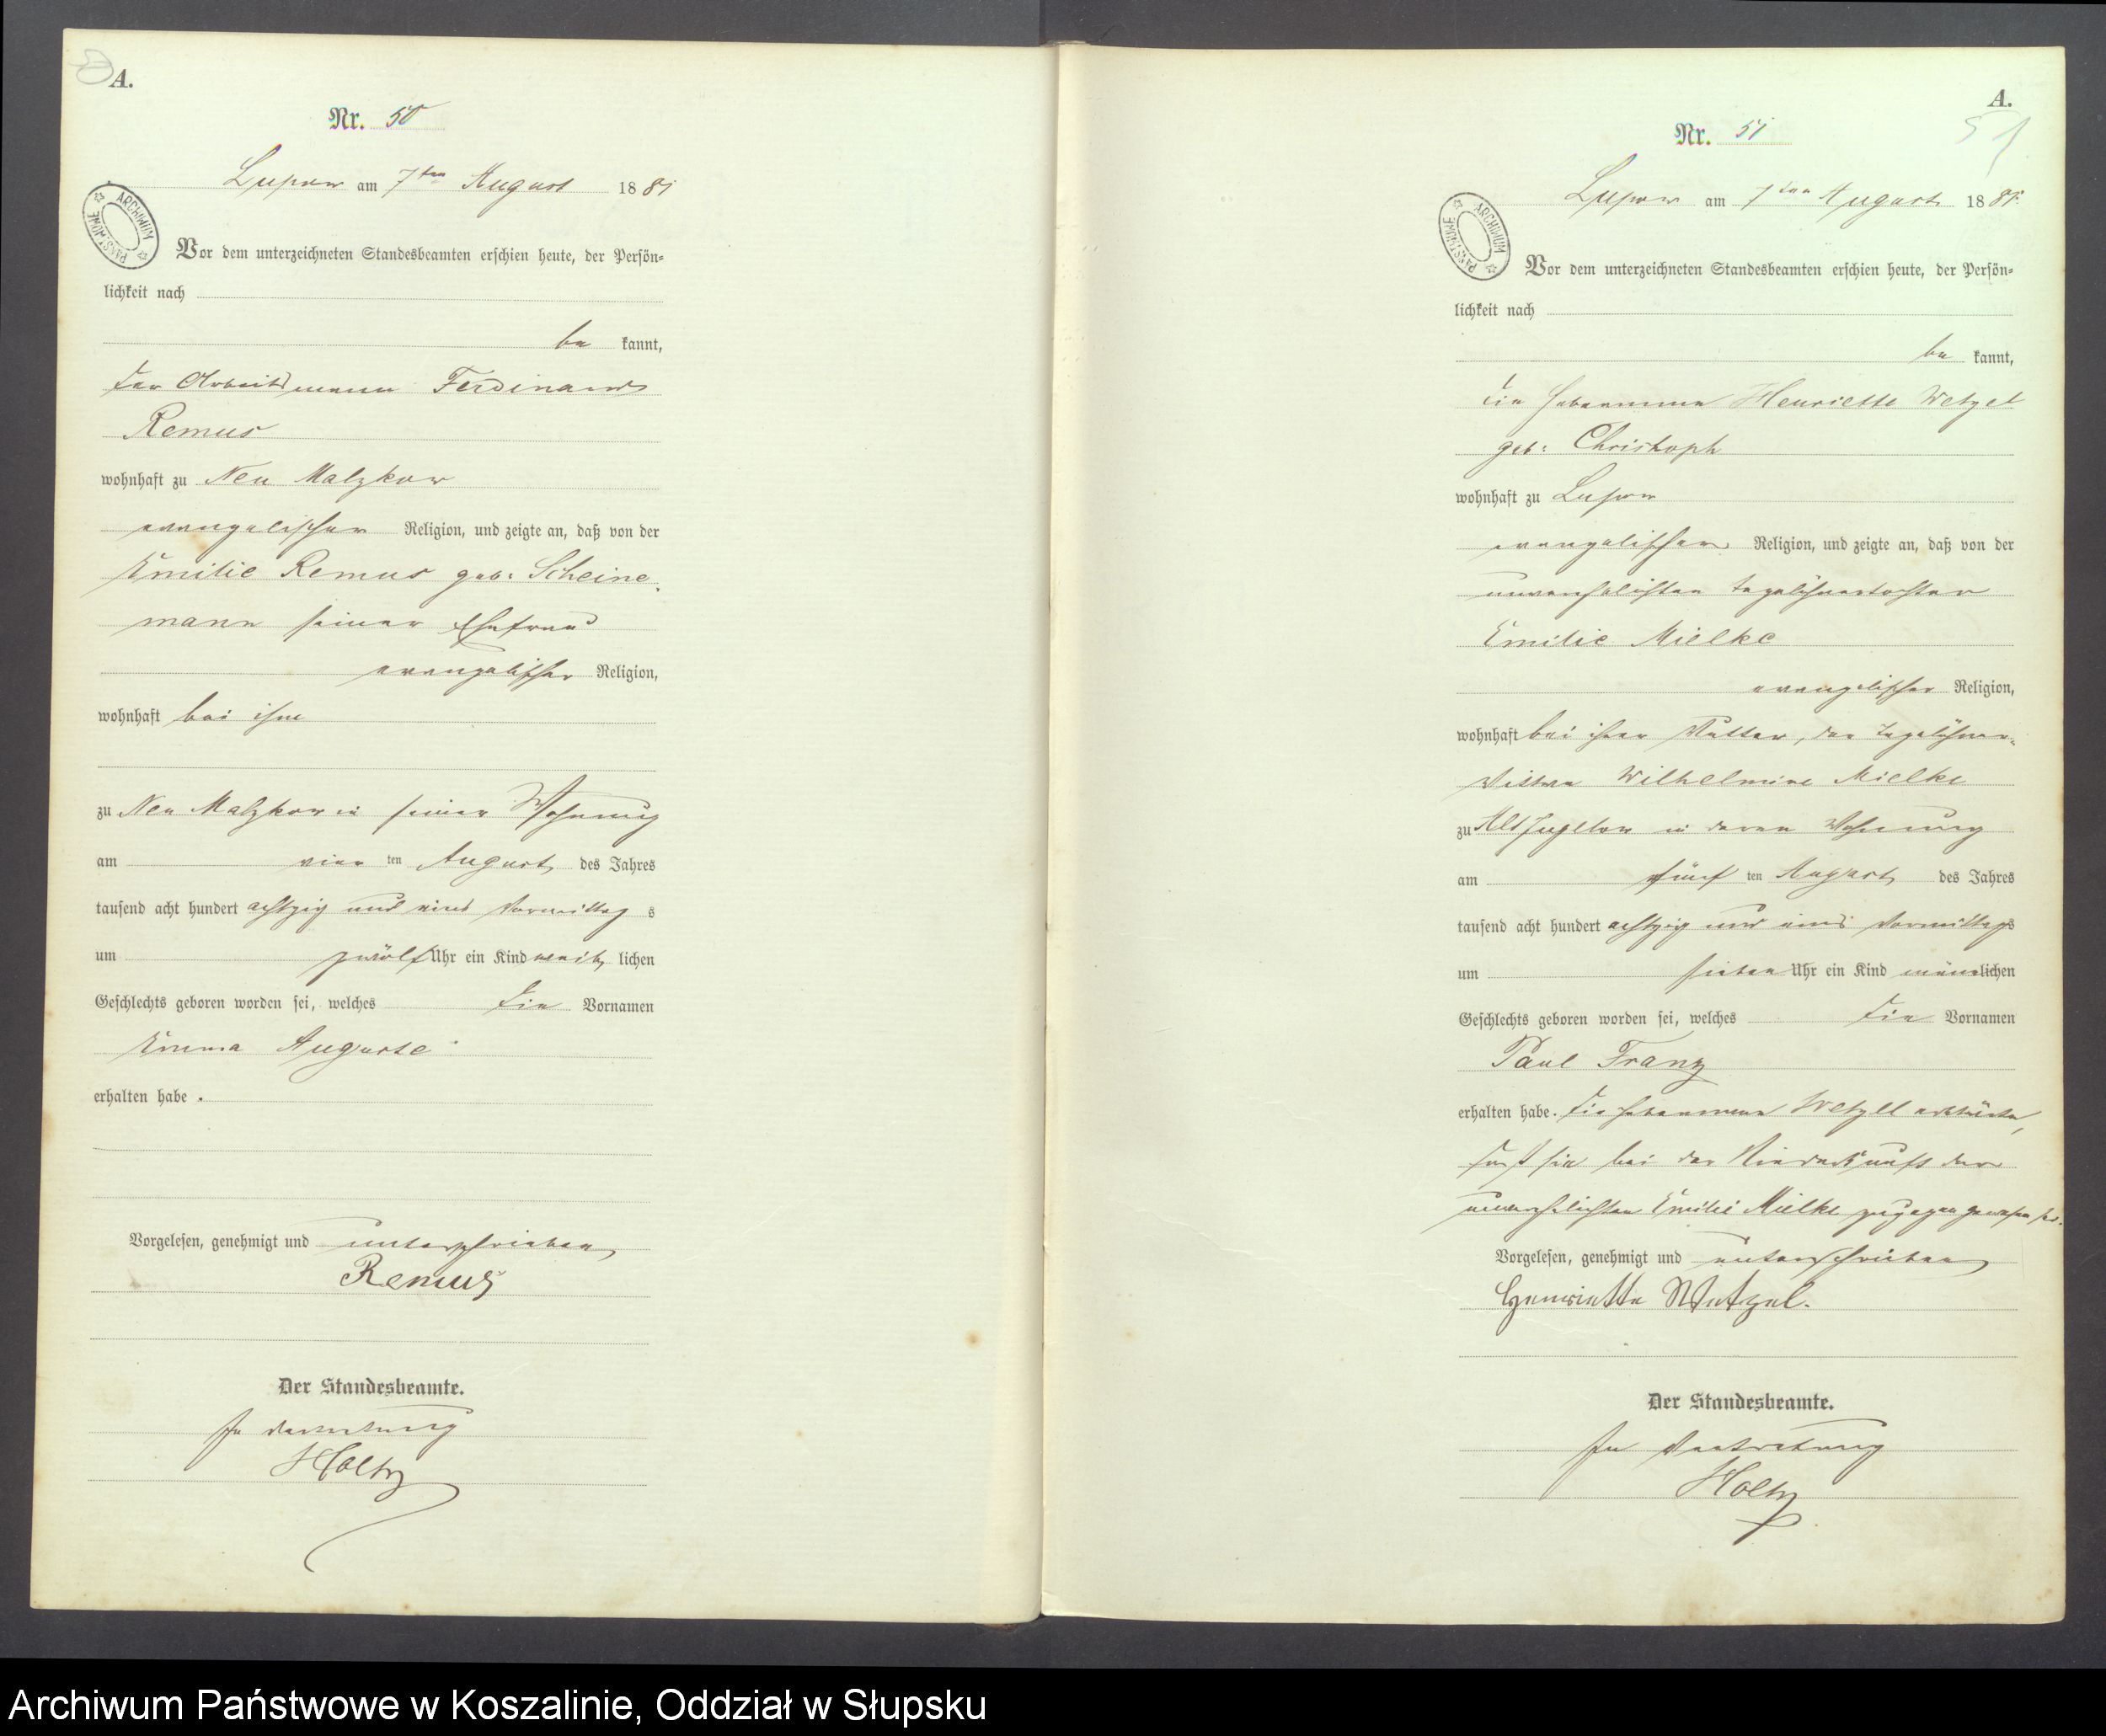 A.
Nr. 50
Lupow am 7ten August 1881
ARCHIWUM PAŃSTWOWE
Vor dem unterzeichneten Standesbeamten erschien heute, der Persön=
lichkeit nach
be kannt,
der Arbeitsmann Ferdinand
Remus
wohnhaft zu Neu Malzkow
evangelischer Religion, und zeigte an, daß von der
Emilie Remus geb: Scheine-
mann seiner Ehefrau
evangelischer Religion,
wohnhaft bei ihm
zu Neu Malzkow in seiner Wohnung
am vier ten August des Jahres
tausend acht hundert achtzig und eins Vormittag s
um zwölf Uhr ein Kind weib lichen
Geschlechts geboren worden sei, welches die Vornamen
Emma Auguste
erhalten habe.
Vorgelesen, genehmigt und unterschrieben
Remus
Der Standesbeamte.
In Vertretung
Holtz
A.
51
Nr. 51
Lupow am 7ten August 1881
ARCHIWUM PAŃSTWOWE
Vor dem unterzeichneten Standesbeamten erschien heute, der Persön=
lichkeit nach
be kannt,
die Hebeamme Henriette Wetzel
geb: Christoph
wohnhaft zu Lupow
evangelischer Religion, und zeigte an, daß von der
unverehelichten Tagelöhnertochter
Emilie Mielke
evangelischer Religion,
wohnhaft bei ihrer Mutter, der Tagelöhner-
Wittwe Wilhelmine Mielke
zu Alt Jugelow in deren Wohnung
am fünf ten August des Jahres
tausend acht hundert achtzig und eins Vormittags
um sieben Uhr ein Kind männlichen
Geschlechts geboren worden sei, welches die Vornamen
Paul Franz
erhalten habe. Die Hebeamme Wetzel erklärte,
daß sie bei der Niederkunft der
unverehelichten Emilie Mielke zugegen gewesen sei.
Vorgelesen, genehmigt und unterschrieben
Henriette Wetzel.
Der Standesbeamte.
In Vertretung
Holtz
Archiwum Państwowe w Koszalinie, Oddział w Słupsku